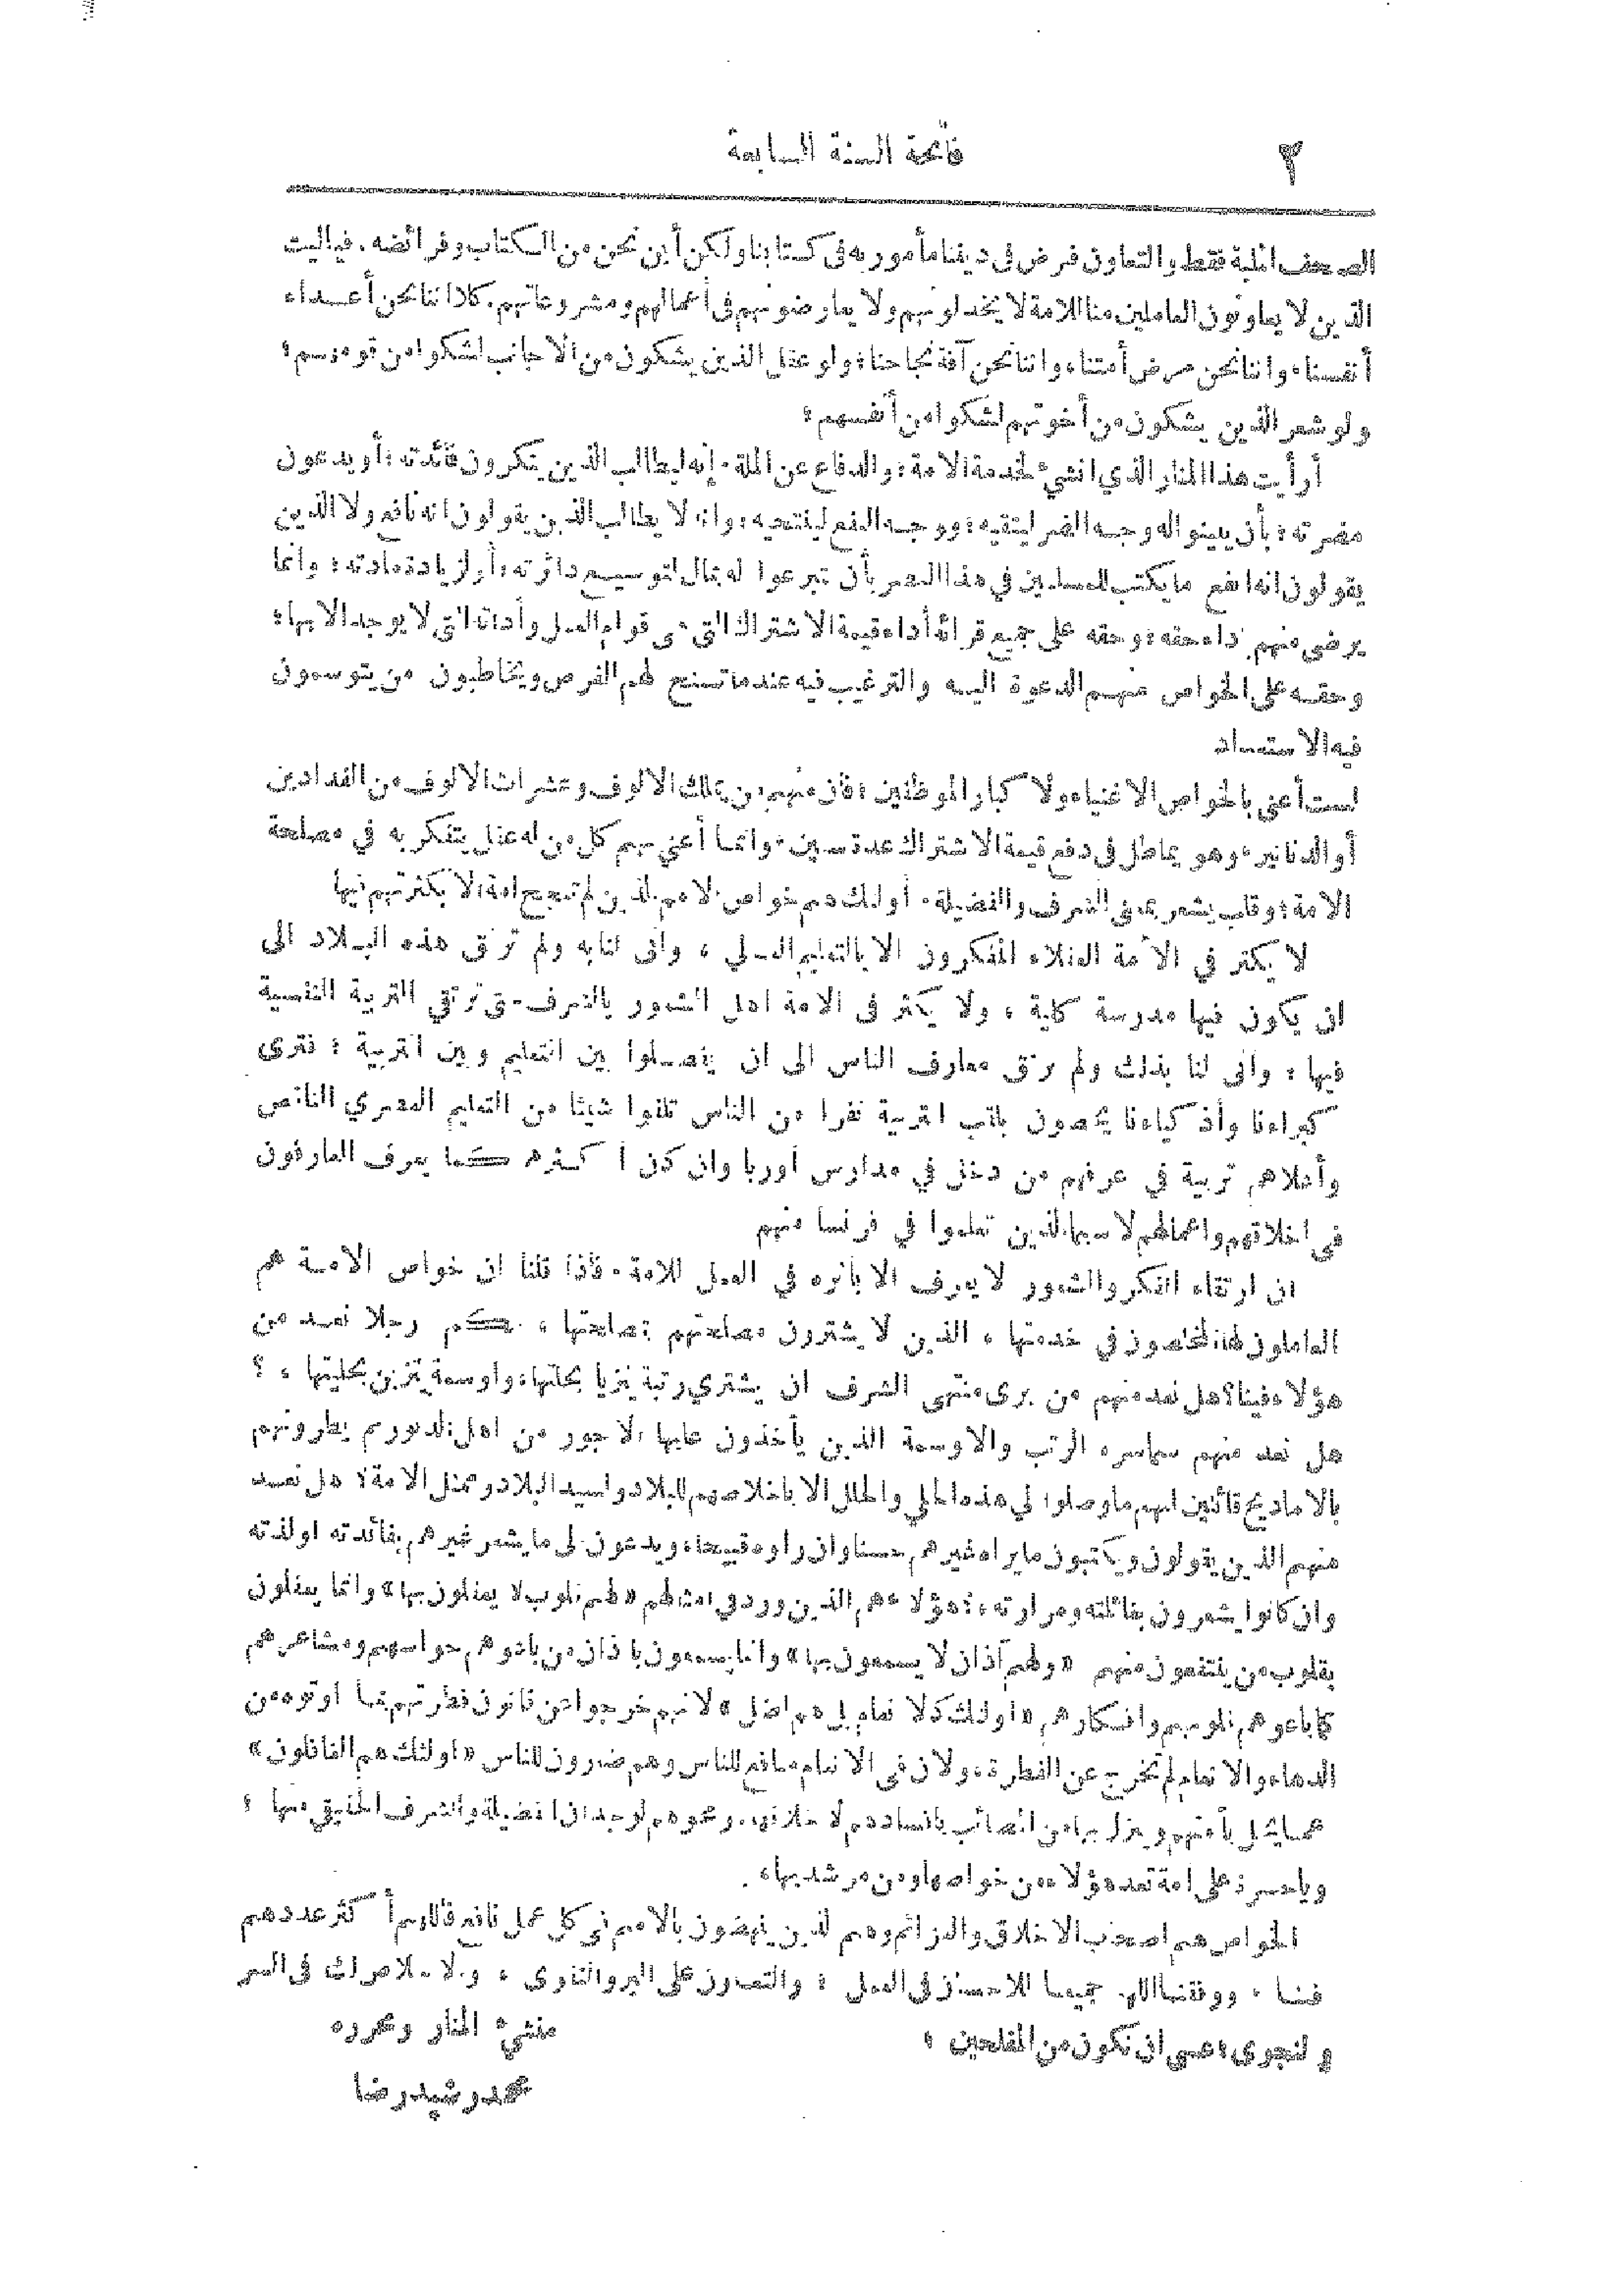 ٣
فاتحة السنة السابعة
الصحف الملية فقط والتعاون فرض في ديننا مأمور به في كتابنا ولكن أين نحن من الكتاب وفرائضه. فياليت
الذين لا يعاونون العاملين منا للامة لا يخذلونهم ولا يعارضونهم في أعمالهم ومشروعاتهم. كلا اننا نحن أعداء
أنفسنا، واننا نحن مرض أمتنا، واننا نحن آفة نجاحنا، ولو عقل الذين يشكون من الاجانب لشكوا من قومهم،
ولو شعر الذين يشكون من أخوتهم لشكوا من أنفسهم،
أرأيت هذا المنار الذي انشئ لخدمة الامة، والدفاع عن الملة. إنه ليطالب الذين ينكرون فائدته، أو يدعون
مضرته، بأن يبينوا له وجه الضر ليتقيه، ووجه النفع لينتحيه، وانه لا يطالب الذين يقولون انه نافع ولا الذين
يقولون انه انفع ما يكتب للمسلمين في هذا العصر بأن تبرعوا له بمال لتوسيع دائرته، أو لزيادة مادته، وانما
يرضى منهم اداء حقه، وحقه على جميع قرائه أداء قيمة الاشتراك التي هي قوام العمل وأداته التي لا يوجد الا بها،
وحقه على الخواص منهم الدعوة اليه والترغيب فيه عندما تسنح لهم الفرص ويخاطبون من يتوسمون
فيه الاستعداد
لست أعني بالخواص الاغنياء ولا كبار الموظفين، فان منهم من يملك الالوف وعشرات الالوف من الفدادين
أو الدنانير، وهو يماطل في دفع قيمة الاشتراك عدة سنين، وانما أعني بهم كل من له عقل يتفكر به في مصلحة
الامة، وقلب يشعر بمعنى الشرف والفضيلة. أولئك هم خواص الامم الذين لم تنجح امة الا بكثرتهم فيها
لا يكثر في الأمة العقلاء المفكرون الا بالتعليم العملي، وانى لنا به ولم ترتق هذه البلاد الى
ان يكون فيها مدرسة كلية، ولا يكثر في الامة اهل الشعور بالشرف حتى ترتقي التربية النفسية
فيها، وانى لنا بذلك ولم ترتق معارف الناس الى ان يفصلوا بين التعليم وبين التربية، فترى
كبراءنا وأذكياءنا يخصون بلقب التربية نفرا من الناس تلقوا شيئا من التعليم العصري الناقص
وأعلاهم تربية في عرفهم من دخل في مدارس أوربا وان كان أكثرهم كما يعرف العارفون
في اخلاقهم واعمالهم لا سيما الذين تعلموا في فرنسا منهم
ان ارتقاء الفكر والشعور لا يعرف الا بأثره في العمل للامة. فاذا قلنا ان خواص الامة هم
العاملون لها المخلصون في خدمتها، الذين لا يشترون مصلحتهم بمصلحتها، فكم رجلا نعد من
هؤلاء فينا؟ هل نعد منهم من يرى منتهى الشرف ان يشتري رتبة يتزيا بحلتها، واوسمة يتزين بحليتها،؟
هل نعد منهم سماسره الرتب والاوسمة الذين يأخذون عليها الاجور من اهل الدثور ثم يطرونهم
بالاماديح قائلين انهم ما وصلوا الى هذه الحلي والحلل الا باخلاصهم للبلاد ولسيد البلاد وممثل الامة؟ هل نعد
منهم الذين يقولون ويكتبون ما يراه غيرهم حسنا وان راوه قبيحا، ويدعون الى ما يشعر غيرهم بفائدته او لذته
وان كانوا يشعرون بغائلته ومرارته،؟ هؤلاء هم الذين ورد في امثالهم «لهم قلوب لا يعقلون بها» وانما يعقلون
بقلوب من ينتفعون منهم «ولهم آذان لا يسمعون بها» وانما يسمعون باذان من باعوهم حواسهم ومشاعرهم
كما باعوهم قلوبهم وافكارهم «اولئك كالانعام بل هم اضل» لانهم خرجوا عن قانون فطرتهم بما اوتوه من
الدهاء والانعام لم تخرج عن الفطرة، ولان في الانعام منافع للناس وهم ضررون للناس «اولئك هم الغافلون»
عما يحل بأمتهم وينزل بها من المصائب بافسادهم لاخلاقها، ومحوهم لوجدان الفضيلة والشرف الحقيقي منها،
وياحسرة على امة تعد هؤلاء من خواصها ومن مرشديها،
الخواص هم اصحاب الاخلاق والعزائم وهم الذين ينهضون بالامم في كل عمل نافع فاللهم أكثر عددهم
فينا، ووفقنا اللهم جميعا للاحسان في العمل، والتعاون على البر والتقوى، والاخلاص لك في السر
والنجوى، عسى ان نكون من المفلحين،
منشيء المنار ومحرره
محمد رشيد رضا